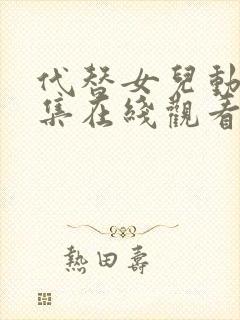 代替女兒動
集在綫觀看
熱田壽